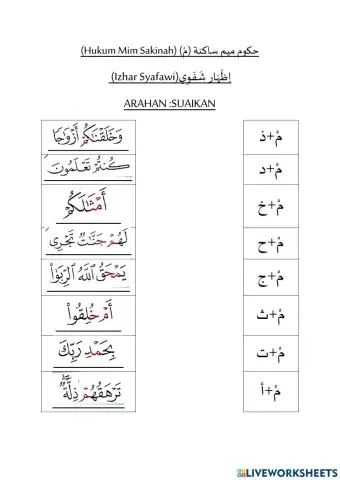 حكوم ميم ساكنة (مْ) (Hukum Mim Sakinah)
إظْهَار شَفَوِي(Izhar Syafawi)
ARAHAN :SUAIKAN
وَخَلَقْنَٰكُمْ أَزْوَٰجًا
مْ+ذ
كُنتُمْ تَعْلَمُونَ
مْ+د
أَمْثَٰلَكُمْ
مْ+خ
لَهُمْ جَنَّٰتٌ تَجْرِى
مْ+ح
يَمْحَقُ ٱللَّهُ ٱلرِّبَوٰا۟
مْ+ج
أَمْ خُلِقُوا۟
مْ+ث
بِحَمْدِ رَبِّكَ
مْ+ت
تَرْهَقُهُمْ ذِلَّةٌ ۖ
مْ+أ
LIVEWORKSHEETS